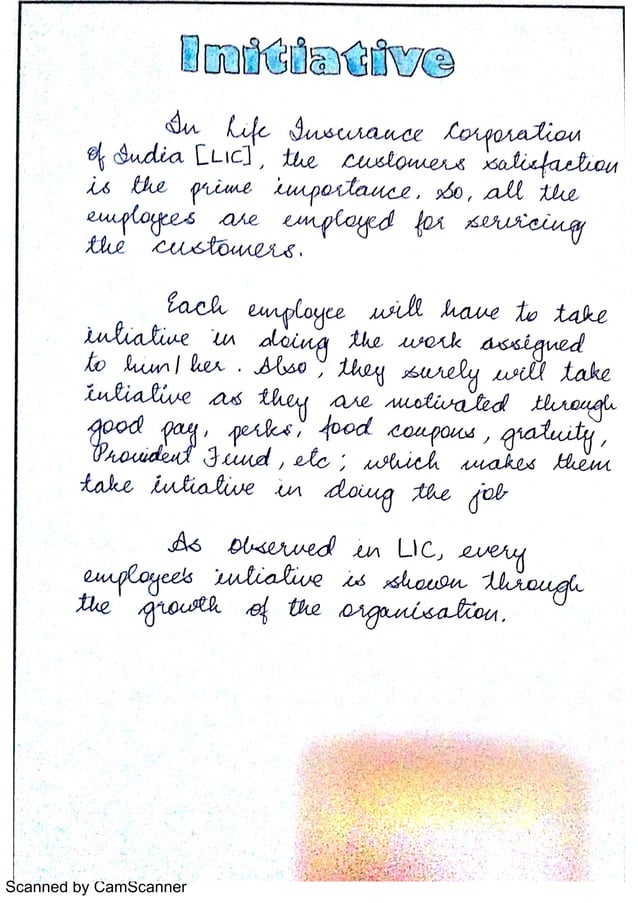 Initiative
In Life Insurance Corporation
of India [LIC], the customers satisfaction
is the prime importance. So, all the
employees are employed for servicing
the customers.
Each employee will have to take
intiative in doing the work assigned
to him/her. Also, they surely will take
intiative as they are motivated through
good pay, perks, food coupons, gratuity,
Provident Fund, etc; which makes them
take intiative in doing the job
As observed in LIC, every
employee's intiative is shown through
the growth of the organisation.
Scanned by CamScanner